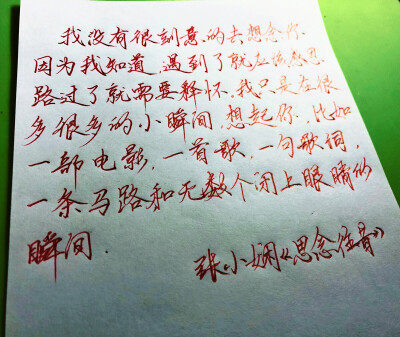 我没有很刻意的去想念你.
因为我知道,遇到了就应该感恩.
路过了就需要释怀.我只是在很
多很多的小瞬间,想起你.比如
一部电影,一首歌,一句歌词,
一条马路和无数个闭上眼睛的
瞬间.
张小娴《思念住着》